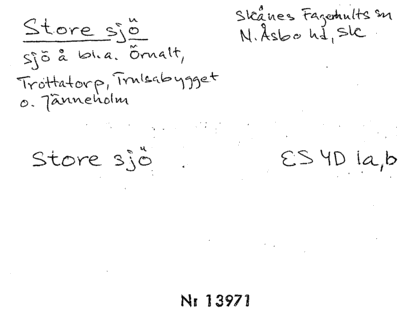 Store sjö
Skånes Fagerhults sn
N. Åsbo hd, Sk
sjö å bl.a. Örnalt,
Trottatorp, Trulsabygget
o. Jänneholm
Store sjö
ES 4D 1a,b
Nr 13971